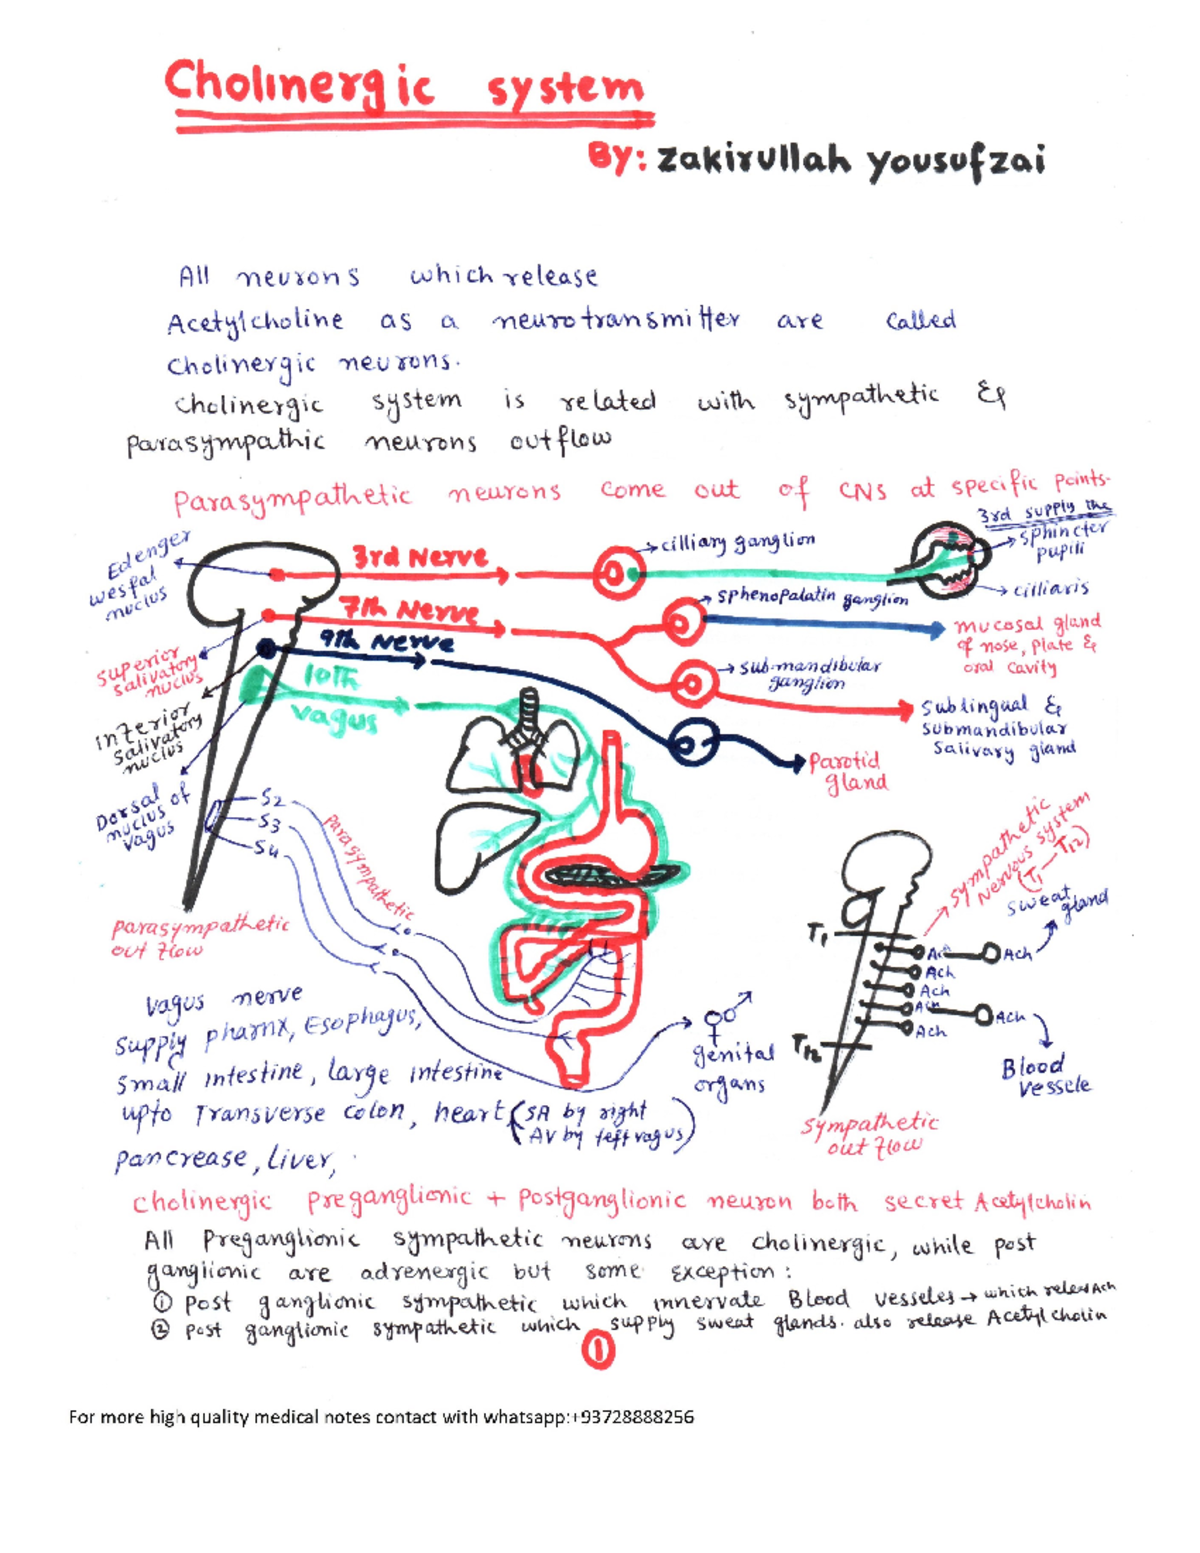 Cholinergic system
By: zakirullah yousufzai
All neurons which release
Acetylcholine as a neurotransmitter are called
cholinergic neurons.
cholinergic system is related with sympathetic &
Parasympathic neurons outflow
Parasympathetic neurons come out of CNS at specific points.
3rd supply the
sphincter
pupili
cilliaris
Edenger
wesfal
nuclus
3rd Nerve
cilliary ganglion
7th Nerve
sphenopalatin ganglion
mucosal gland
of nose, plate &
oral cavity
9th Nerve
superior
salivatory
nuclus
sub-mandibular
ganglion
10th
vagus
Sublingual &
submandibular
salivary gland
inferior
salivatory
nuclus
Parotid
gland
Dorsal
nuclus of
vagus
S2
S3
S4
parasympathetic
sympathetic
Nervous system
(T1 — T12)
sweat
gland
T1
Ach
Ach
Ach
Ach
Ach
Ach
Ach
T12
Blood
vessele
sympathetic
out flow
parasympathetic
out flow
genital
organs
vagus nerve
supply pharnx, Esophagus,
small intestine, large intestine
upto Transverse colon, heart (SA by right
AV by left vagus)
pancrease, liver,
cholinergic preganglionic + postganglionic neuron both secret Acetylcholin
All Preganglionic sympathetic neurons are cholinergic, while post
ganglionic are adrenergic but some exception:
① Post ganglionic sympathetic which innervate Blood vesseles → which releas Ach
② Post ganglionic sympathetic which supply sweat glands. also release Acetylcholin
1
For more high quality medical notes contact with whatsapp:+93728888256